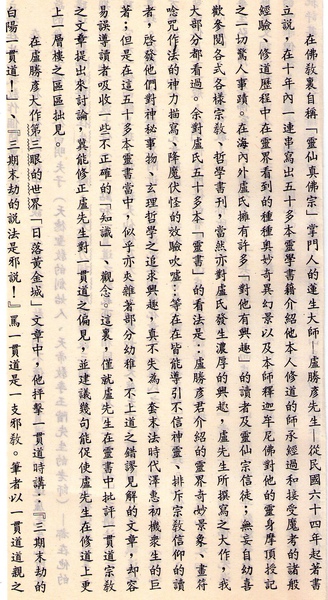 在佛敎裏自稱「靈仙真佛宗」掌門人的蓮生大師─盧勝彥先生─從民國六十四年起著書
立說，在十年內一連串寫出五十多本靈學書籍介紹他本人修道的師承經過和接受魔考的諸般
經驗、修道歷程中在靈界看到的種種奧妙奇異幻景以及本師釋迦牟尼佛對他的靈身摩頂授記
之一切驚人事蹟。在海內外盧氏擁有許多「對他有興趣」的讀者及靈仙宗信徒；無妄自幼喜
歡參閱各式各樣宗敎、哲學書刊，當然亦對盧氏發生濃厚的興趣，盧先生所撰寫之大作，我
大部分都看過。余對盧氏五十多本「靈書」的看法是：盧勝彥君介紹的靈界奇妙景象、畫符
唸咒作法的神力描寫、降魔伏怪的效驗吹噓…等在在皆能導引不信神靈、排斥宗敎信仰的讀
者，啓發他們對神秘事物、玄理哲學之追求興趣，真不失為一套末法時代澤惠初機衆生的巨
著；但是在這五十多本靈書當中，似乎亦夾雜著部分幼稚、不上道之錯謬見解的文章，却容
易誤導讀者吸收一些不正確的「知識」、觀念。這裏，僅就盧先生在靈書中批評一貫道宗旨
之文章提出來討論，冀能修正盧先生對一貫道之偏見，並建議幾句能促使盧先生在修道上更
上一層樓之區區拙見。
在盧勝彥大作第三眼的世界「日落黃金城」文章中，他抨擊一貫道時講：『三期末劫的
白陽一貫道！』、『三期末劫的說法是邪說！』罵一貫道是一支邪敎。筆者以一貫道道親之